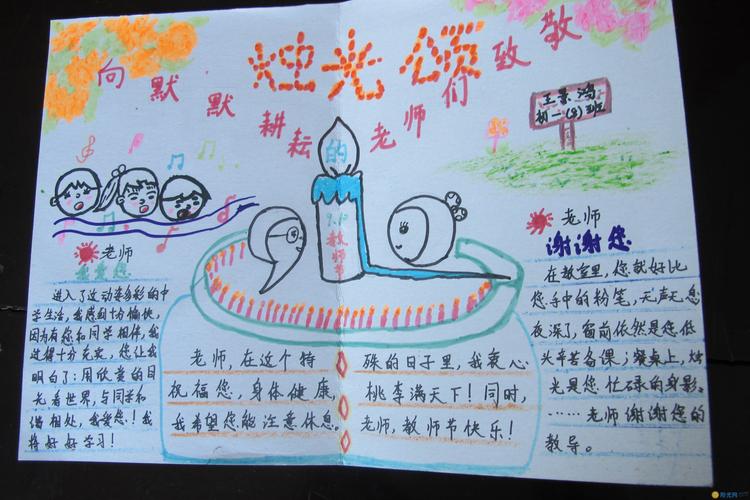 烛光颂
向默默耕耘的老师们致敬
王景鸿
一(8)班
9.10
教师节
老师
我爱您
进入了这动姿多彩的中
学生活,我感到十分愉快,
因为有您和同学相伴,我
过得十分充实,您让我
明白了:用欣赏的目
光看世界,与同学和
谐相处,我爱您!我
将好好学习!
老师,在这个特殊的日子里,我衷心
祝福您,身体健康,桃李满天下!同时,
我希望您能注意休息.老师,教师节快乐!
老师
谢谢您
在教室里,您就好比
您手中的粉笔,无声无息
夜深了,窗前依然是您低
头辛苦备课;餐桌上,烛
光是您忙碌的身影。
……老师谢谢您的
教导。